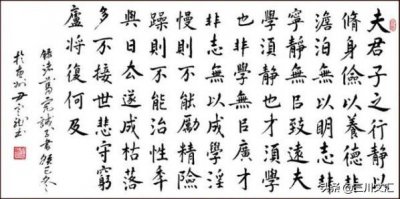 夫君子之行静以
脩身儉以養德非
澹泊無以明志非
寧静無㠯致遠夫
學須静也才須學
也非學無㠯廣才
非志無以成學淫
慢則不能勵精險
躁則不能治性秊
與日去遂成枯落
多不接世悲守窮
廬將復何及
錄諸葛亮誡子書癸巳冬
於
头条 @巨川文汇